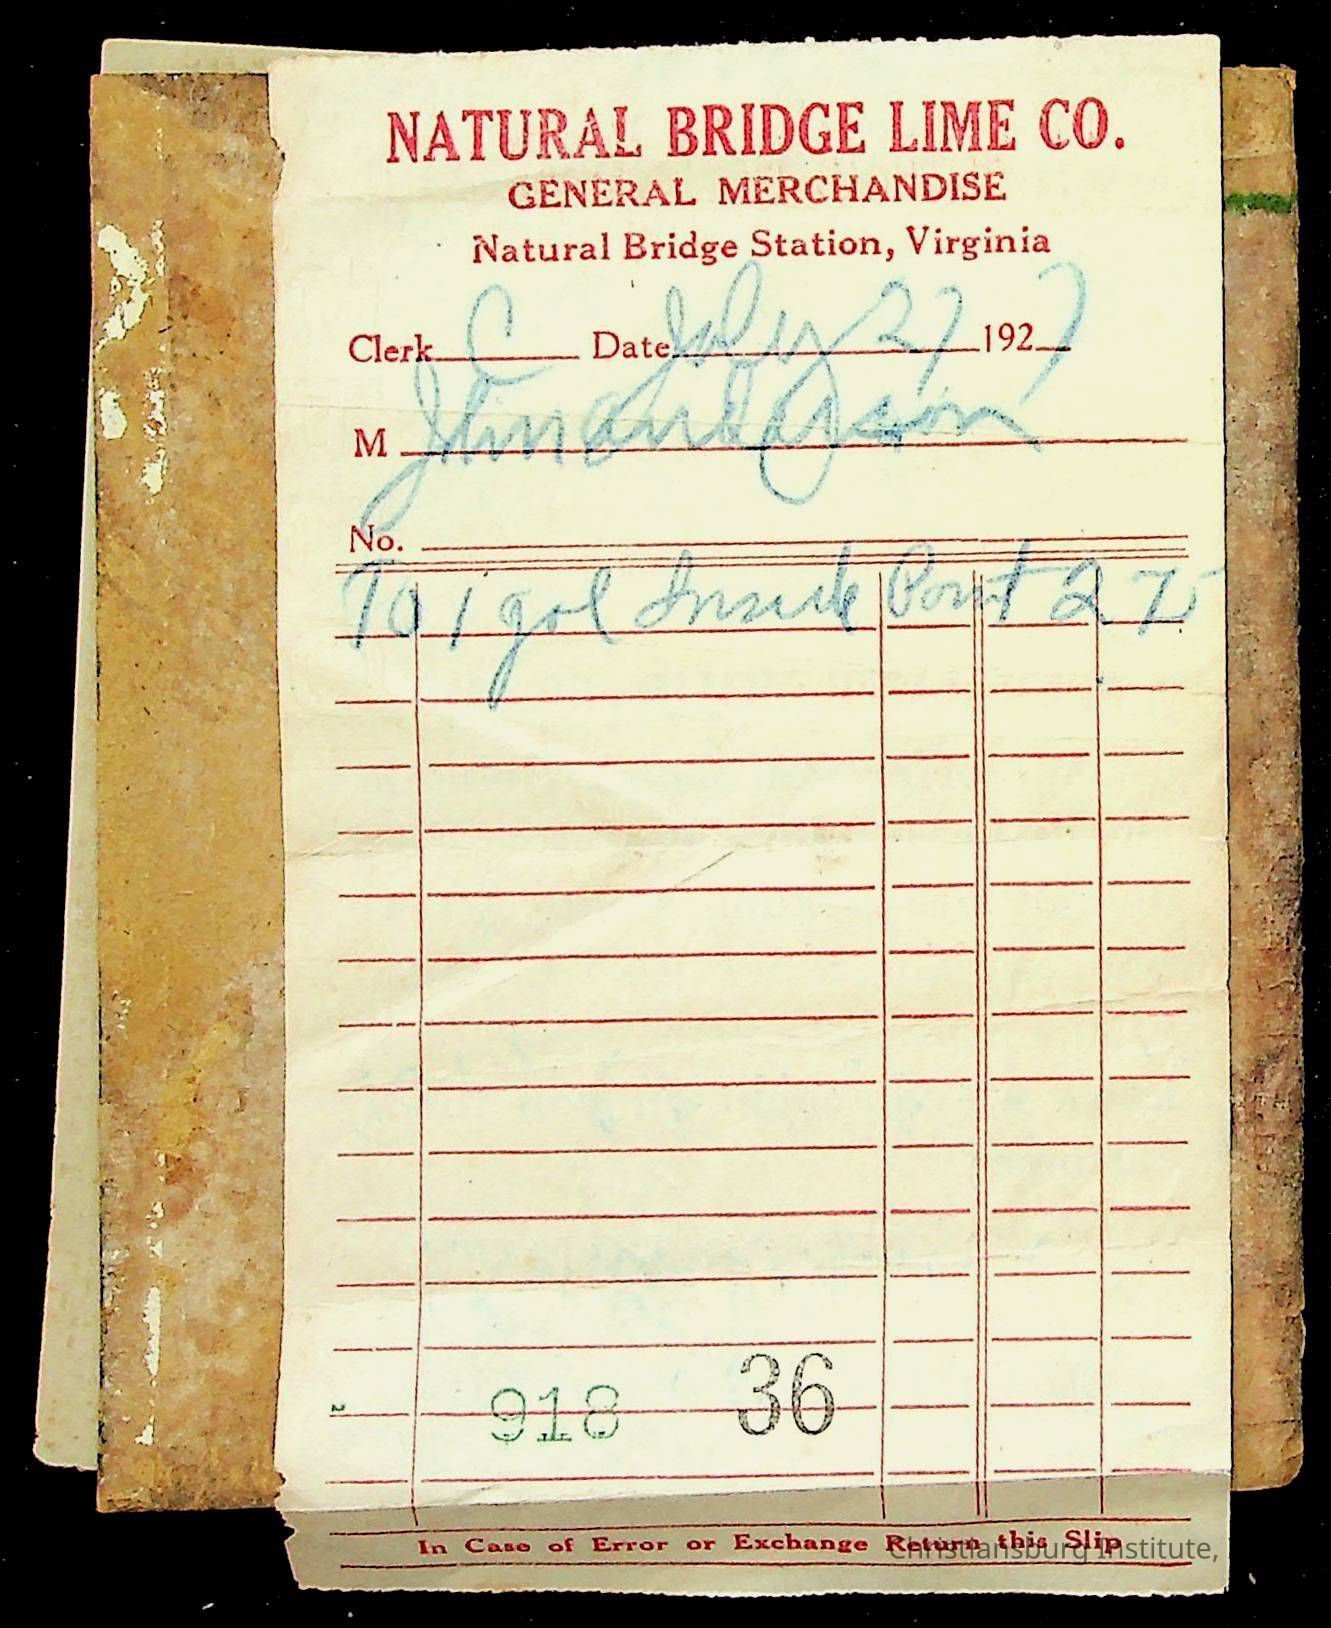 NATURAL BRIDGE LIME CO.
GENERAL MERCHANDISE
Natural Bridge Station, Virginia
Clerk C Date July 27 1927
M
No.
To 1 gal Inside Paint 2 75
918 36
In Case of Error or Exchange Return this Slip
Christiansburg Institute,